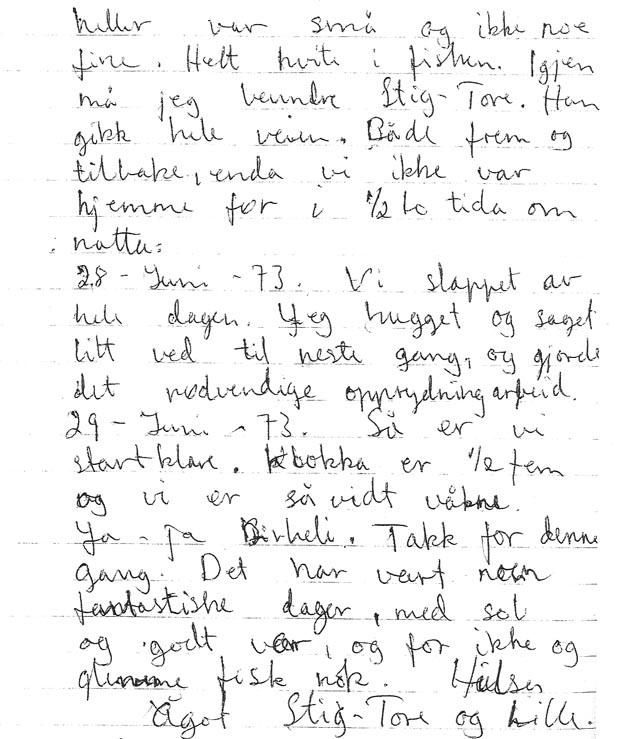 heller var små og ikke noe
fine. Helt hvite i fisken. Igjen
må jeg beundre Stig-Tore. Han
gikk hele veien. Både frem og
tilbake, enda vi ikke var
hjemme før i 1/2 to tida om
natta.
28 - Juni - 73. Vi slappet av
hele dagen. Jeg hugget og saget
litt ved til neste gang, og gjorde
det nødvendige opprydningarbeid.
29 - Juni - 73. Så er vi
startklare. klokka er 1/2 fem
og vi er så vidt våkne.
Ja - Ja Birheli. Takk for denne
gang. Det har vært noen
fantastiske dager, med sol
og godt vær, og for ikke og
glemme fisk nok. Hilsen
Ågot Stig-Tore og Lille.